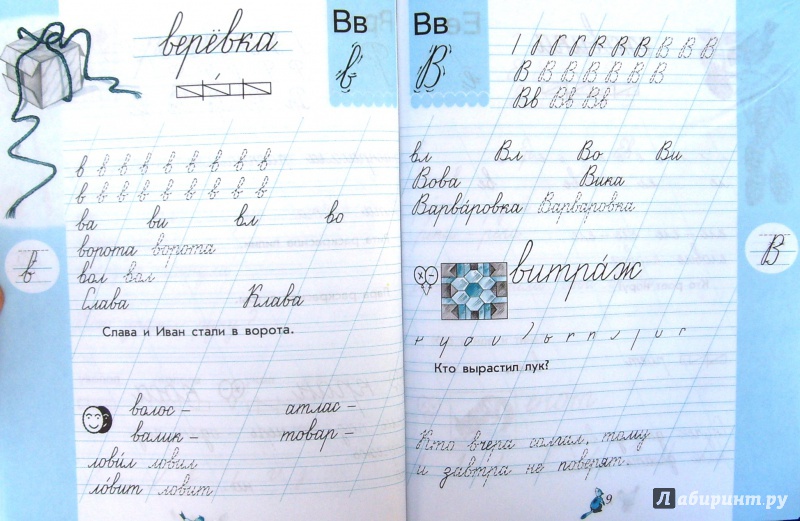 верёвка
Вв
в
в в в в в в в в в
в в в в в в в в в
ва ви вл во
ворота ворота
вол вол
Слава Клава
Слава и Иван стали в ворота.
в
волос – атлас –
валик – товар –
лови́л ловил
ло́вит ловит
Вв
В
В В В В В В В
Вв Вв Вв
вл Вл Во Ви
Вова Вика
Варва́ровка Варваровка
В
витра́ж
Кто вырастил лук?
Кто вчера солгал, тому
и завтра не поверят.
9
Лабиринт.ру